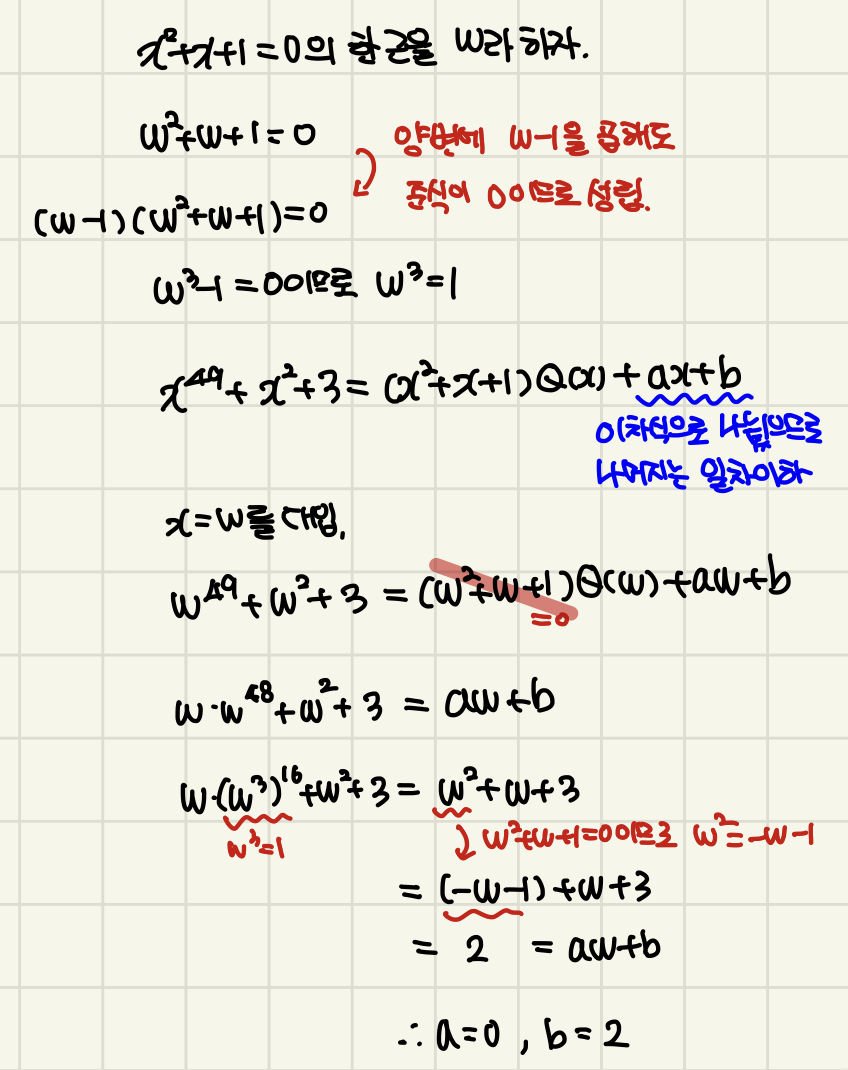 x²+x+1=0의 한 근을 w라 하자.
w²+w+1=0
양변에 w-1을 곱해도
준식이 0이므로 성립.
(w-1)(w²+w+1)=0
w³-1=0이므로 w³=1
x⁴⁹+x²+3=(x²+x+1)Q(x)+ax+b
이차식으로 나눴으므로
나머지는 일차이하
x=w를 대입.
w⁴⁹+w²+3=(w²+w+1)Q(w)+aw+b
=0
w·w⁴⁸+w²+3=aw+b
w·(w³)¹⁶+w²+3=w²+w+3
w³=1
w²+w+1=0이므로 w²=-w-1
=(-w-1)+w+3
=2=aw+b
∴a=0, b=2